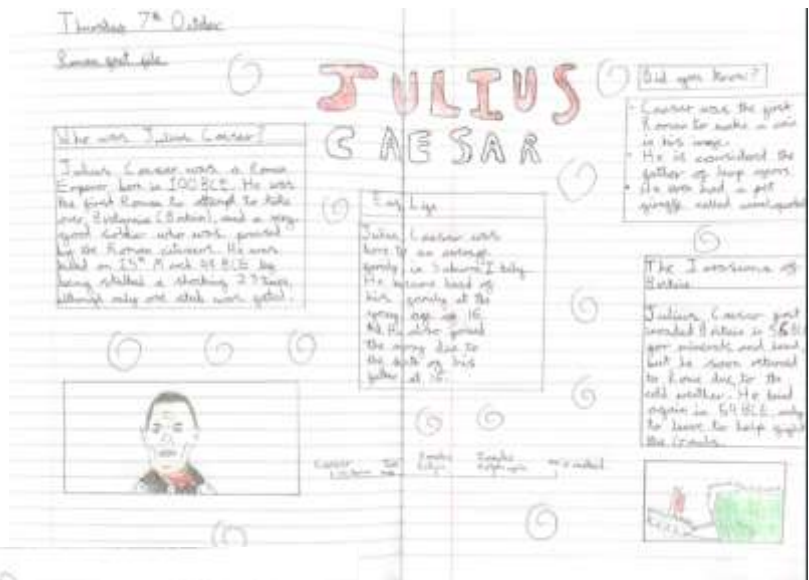 Thursday 7th October
Roman fact file
JULIUS
CAESAR
Who was Julius Caesar?
Julius Caesar was a Roman
Emperor born in 100 BCE. He was
the first Roman to attempt to take
over Britannia (Britain), and a very
good soldier who was praised
by the Roman citizens. He was
killed on 15th March 44 BCE by
being stabbed a shocking 23 times,
although only one stab was fatal.
Early Life
Julius Caesar was
born to an average
family in Italy
He became head of
his family at the
young age of 16.
He also joined
the army due to
the death of his
father at 16.
Did you know?
• Caesar was the first
Roman to make a coin
in his image.
• He is considered the
father of leap years.
• He even had a pet
giraffe called
The Invasions of
Britain
Julius Caesar first
invaded Britain in BCE
for minerals and land
but he soon returned
to Rome due to the
cold weather. He tried
again in 54 BCE only
to leave to help fight
the Gauls.
Caesar